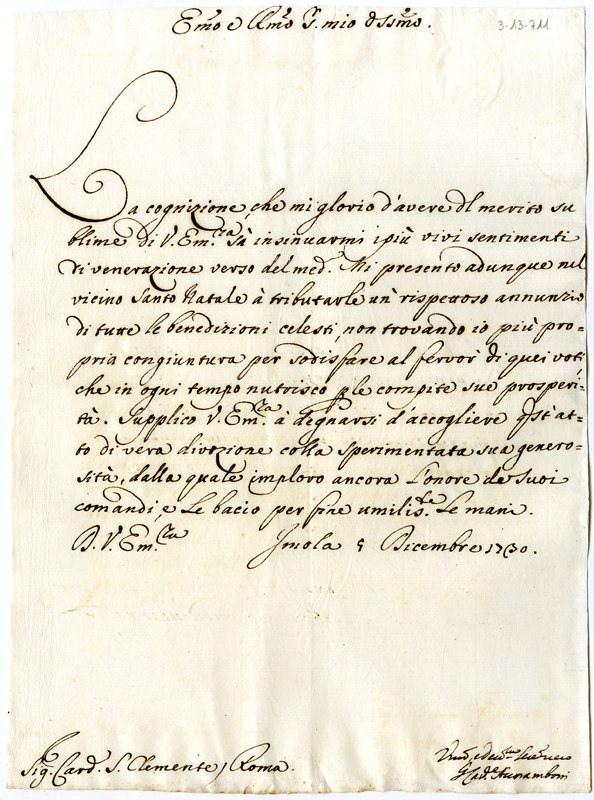 Emo e Rmo S. mio Ossmo.
3-13-711
La cognizione, che mi glorio d'avere del merito su
blime di V. Em.za fà insinuarmi i più vivi sentimenti
di venerazione verso del med. Mi presento adunque nel
vicino Santo Natale à tributarle un rispettoso annunzio
di tutte le benedizioni celesti, non trovando io più pro=
pria congiuntura per sodisfare al fervor di quei voti
che in ogni tempo nutrisco ple compite sue prosperi=
tà. Supplico V. Em.za à degnarsi d'accogliere qst'at=
to di vera divozione colla sperimentata sua genero=
sità, dalla quale imploro ancora l'onore de suoi
comandi, e le bacio per fine umilis.te le mani.
D. V. Em.za Imola 5 Dicembre 1730.
Sig. Card. S. Clemente / Roma.